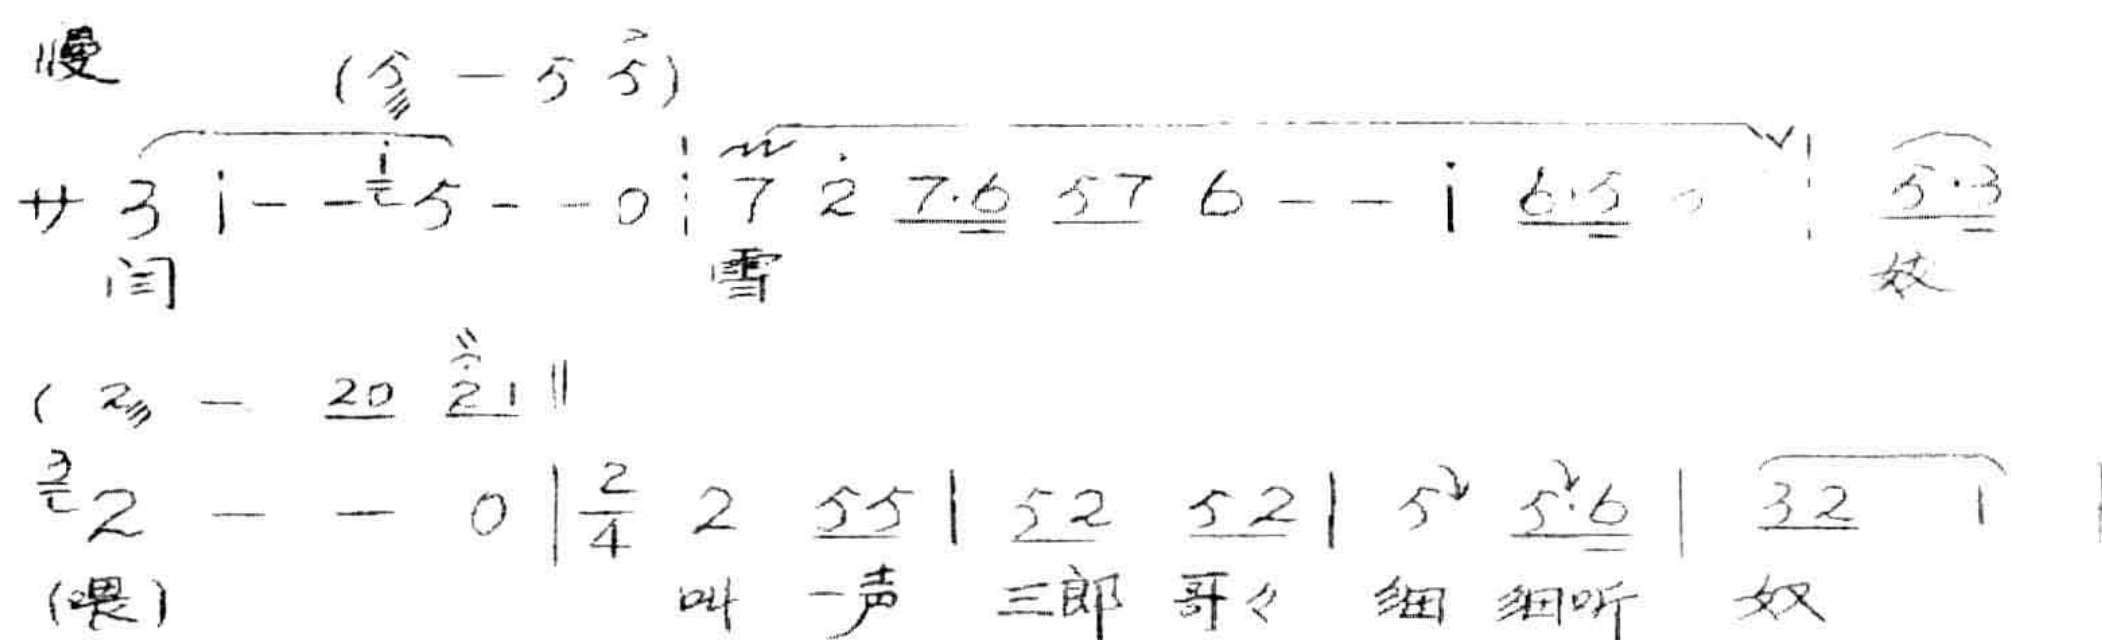 慢
(5 - 5 5)
サ 3 i - - i 5 - - 0 ┊ 7 2 7·6 57 6 - - i 6·5 ┊ 5·3
闫 雪 妓
( 2 - 20 21 ‖
3 2 - - 0 | 2/4 2 55 | 52 52 | 5 5·6 | 32 1 |
(喂) 叫 一声 三郎 哥々 细 细听 奴